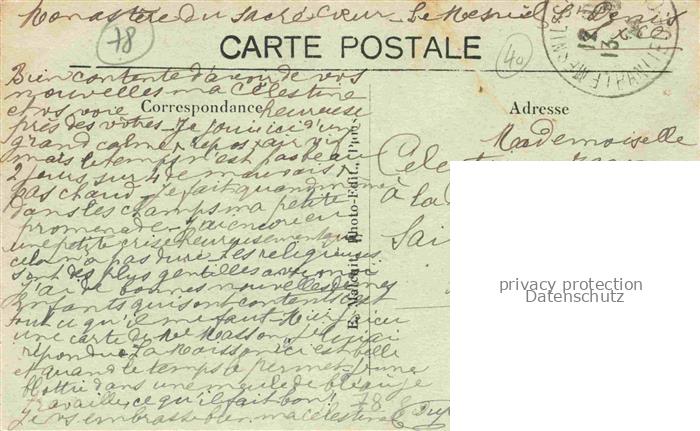 Monastère du Sacré Cœur - Le Mesnil St Denis
78
40
CARTE POSTALE
Bien contente d'avoir de vos
nouvelles ma Célestine
et vs voir heureuse
Correspondance
près des vôtres - Je jouis ici d'un
grand calme repos air vif
mais le temps n'est pas beau
2 jours sur 4 de mauvais &
pas chaud - Je fais quand même
dans les champs ma petite
promenade - J'ai encore eu
une petite crise heureusement que
cela n'a pas duré. Les religieuses
sont des plus gentilles avec moi
J'ai de bonnes nouvelles de mes
Enfants qui sont contents c'est
tout ce qu'il me faut - Hier j'ai eu
une carte du Masson je lui ai
répondu. La Moisson ici est belle
et quand le temps le permet
blottie dans une meule de blé
travaille, ce qu'il fait bon!
Je vs embrasse bien ma Célestine
78
Adresse
Mademoiselle
à la
E. Malcuit, Photo-Edit., Paris
privacy protection
Datenschutz